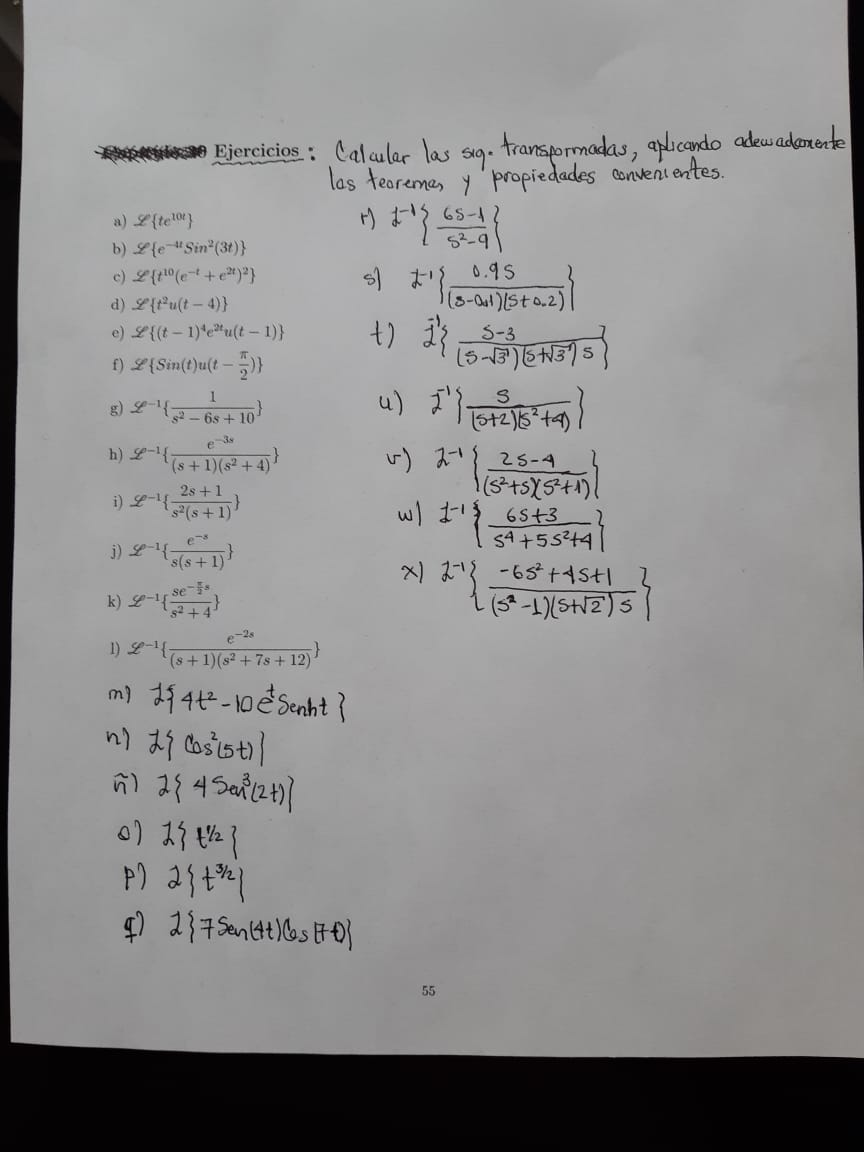 Ejercicios : Calcular las sig. transformadas, aplicando adecuadamente
las teoremas y propiedades convenientes.
a) ℒ{te^{10t}}
b) ℒ{e^{-4t}Sin²(3t)}
c) ℒ{t^{10}(e^{-t} + e^{2t})²}
d) ℒ{t²u(t − 4)}
e) ℒ{(t − 1)⁴e^{2t}u(t − 1)}
f) ℒ{Sin(t)u(t − \frac{π}{2})}
g) ℒ^{-1}{\frac{1}{s² − 6s + 10}}
h) ℒ^{-1}{\frac{e^{-3s}}{(s + 1)(s² + 4)}}
i) ℒ^{-1}{\frac{2s + 1}{s²(s + 1)}}
j) ℒ^{-1}{\frac{e^{-s}}{s(s + 1)}}
k) ℒ^{-1}{\frac{se^{-\frac{π}{2}s}}{s² + 4}}
l) ℒ^{-1}{\frac{e^{-2s}}{(s + 1)(s² + 7s + 12)}}
m) ℒ{4t² − 10e^{t}Senht}
n) ℒ{Cos²(5t)}
ñ) ℒ{4Sen³(2t)}
o) ℒ{t^{1/2}}
p) ℒ{t^{3/2}}
q) ℒ{7Sen(4t)Cos(7t)}
r) ℒ^{-1}{\frac{6s-1}{s²-9}}
s) ℒ^{-1}{\frac{0.9s}{(s-0.1)(s+0.2)}}
t) ℒ^{-1}{\frac{s-3}{(s-√3)(s+√3)s}}
u) ℒ^{-1}{\frac{s}{(s+2)(s²+4)}}
v) ℒ^{-1}{\frac{2s-4}{(s²+s)(s²+1)}}
w) ℒ^{-1}{\frac{6s+3}{s⁴+5s²+4}}
x) ℒ^{-1}{\frac{-6s²+4s+1}{(s²-1)(s+√2)s}}
55